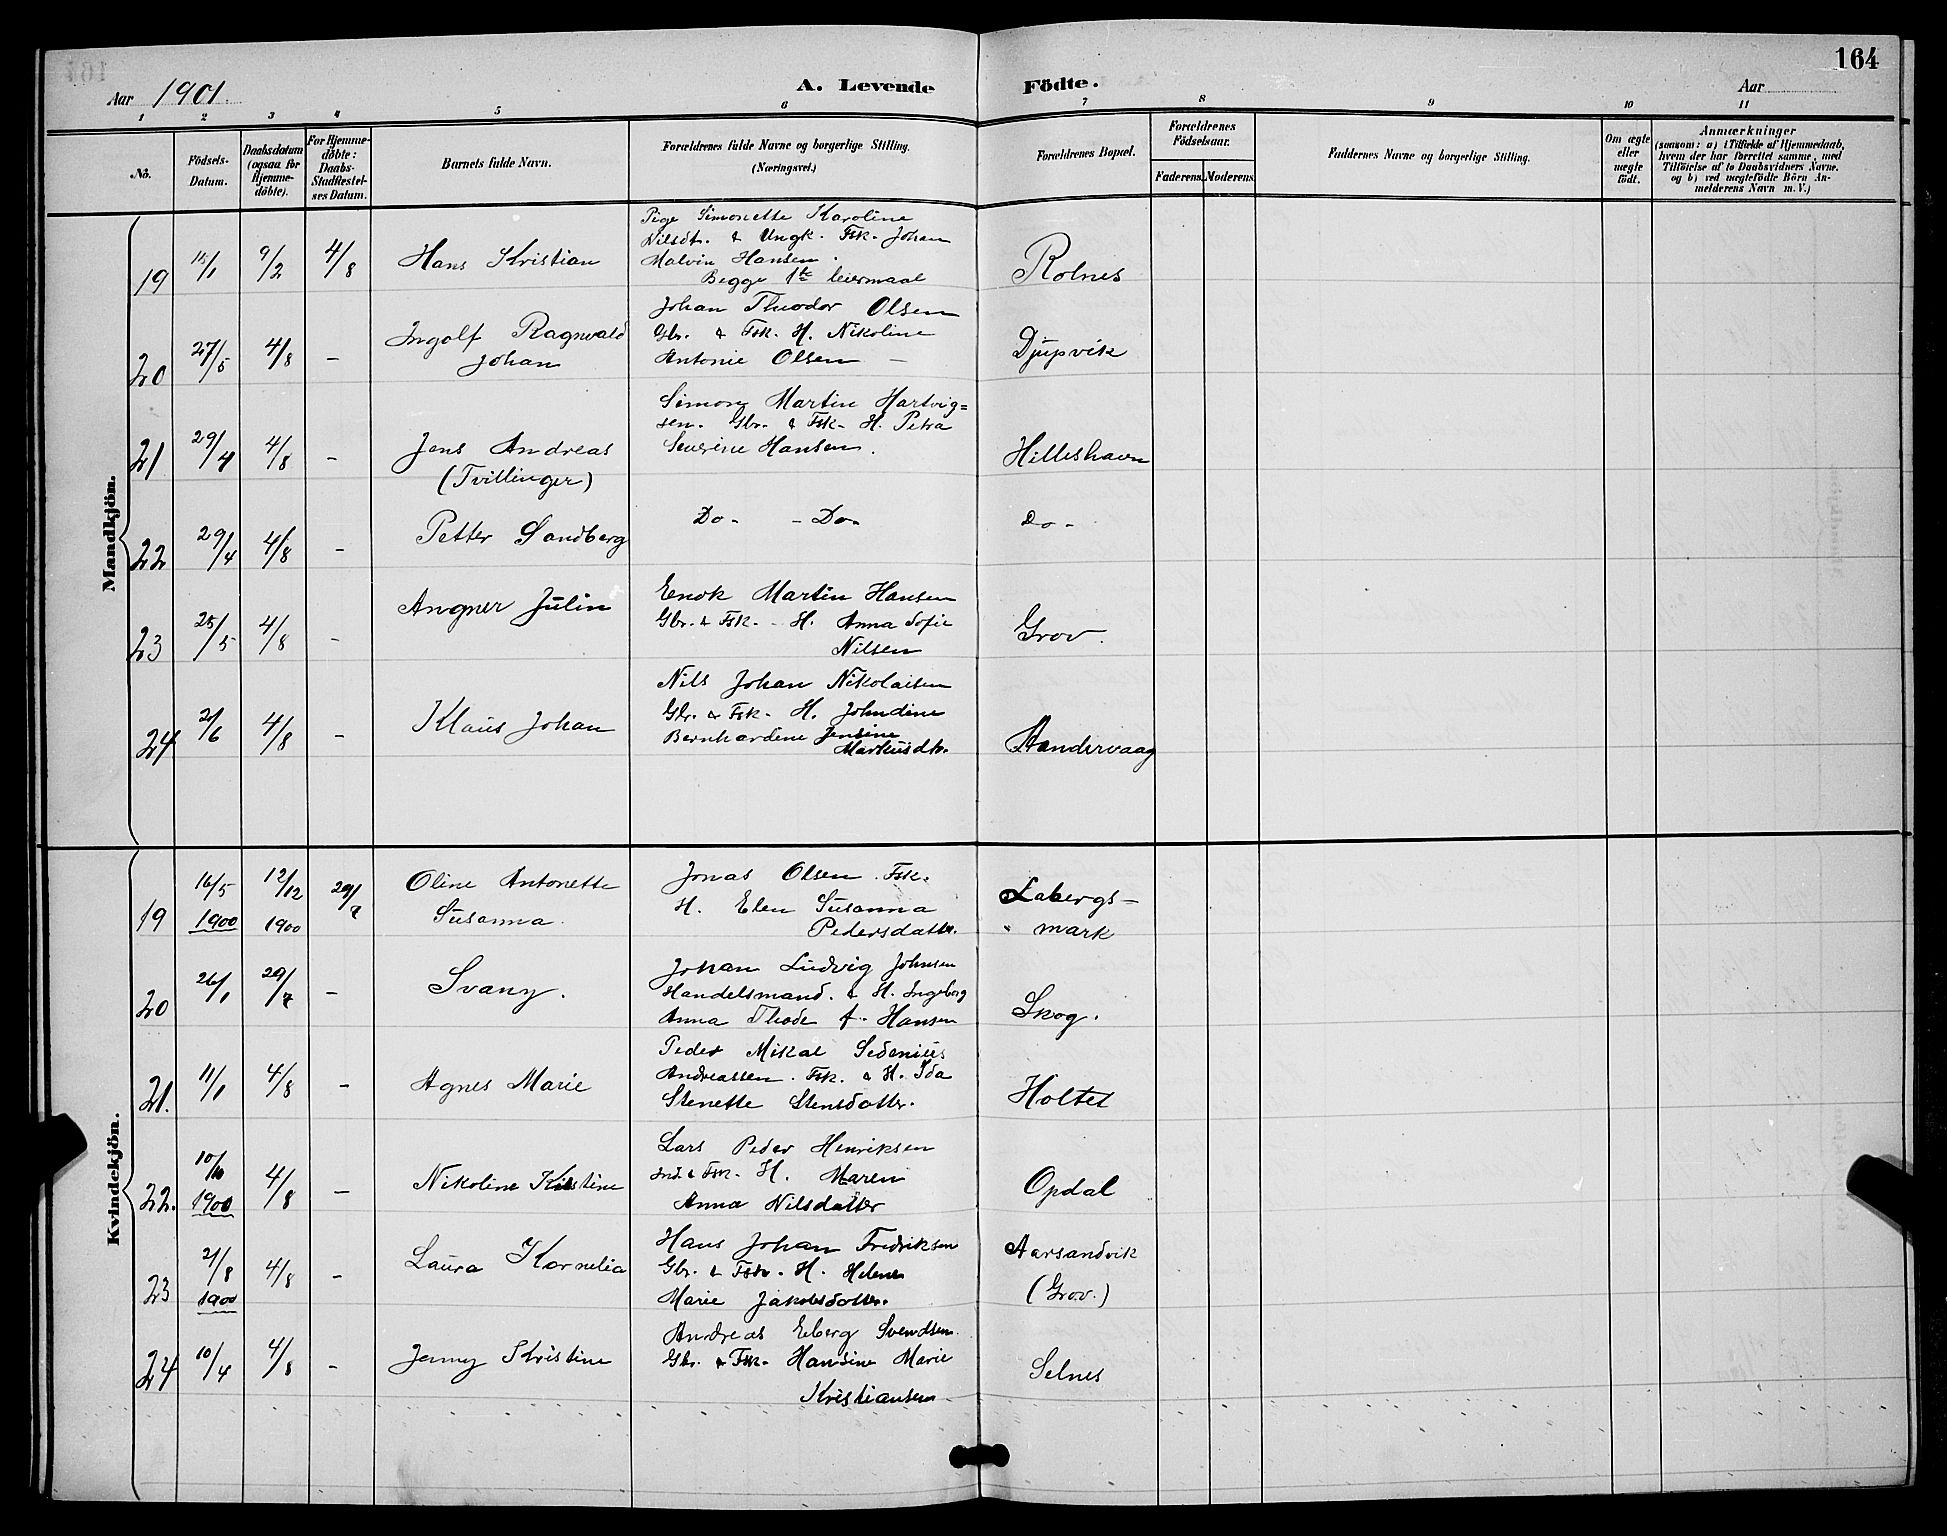 164
Aar 1901.
A. Levende Födte.
Aar
1 2 3 4 5 6 7 8 9 10 11
No.
Födsels-Datum.
Daabsdatum (ogsaa for Hjemme-döbte).
For Hjemme-döbte: Daabs-Stadfæstel-ses Datum.
Barnets fulde Navn.
Forældrenes fulde Navne og borgerlige Stilling.
(Næringsvei.)
Forældrenes Bopæl.
Forældrenes Födselsaar.
Faderens. Moderens.
Faddernes Navne og borgerlige Stilling.
Om ægte eller uægte födt.
Anmærkninger
(saasom: a) i Tilfælde af Hjemmedaab,
hvem der har forrettet samme, med
Tilföielse af to Daabsvidners Navne,
og b) ved uægtefödte Börn An-
melderens Navn m. V.)
Mandkjön.
19 15/1 9/2 4/8 Hans Kristian
Pige Simonette Karoline
Nilsdt. & Ungk. Fsk. Johan
Malvin Hansen.
Begge 1ste leiermaal
Rolnes
20 27/5 4/8 - Ingolf Ragnvald
Johan
Johan Theodor Olsen
Gbr. & Fsk. H. Nikoline
Antonie Olsen -
Djupvik
21 29/4 4/8 - Jens Andreas
(Tvillinger)
Simon Martin Hartvig=
sen. Gbr. & Fsk. H. Petra
Severine Hansen.
Hilleshavn
22 29/4 4/8 - Petter Sandberg
Do. - Do.
Do -
23 25/5 4/8 - Angner Julin
Enok Martin Hansen
Gbr. & Fsk. - H. Anna Sofie
Nilsen
Grov.
24 2/6 4/8 - Klaus Johan
Nils Johan Nikolaisen
Gbr. & Fsk. H. Johndine
Bernhardene Jensine
Markusdtr.
Sandervaag
Kvindekjön.
19 16/5 1900 12/12 1900 29/7 Oline Antonette
Susanna.
Jonas Olsen. Fsk.
H. Elen Susanna
Pedersdatter.
Labergs-
" mark
20 26/1 29/7 - Svany.
Johan Ludvig Johnsen
Handelsmand. & H. Ingeborg
Anna Thode f. Hansen
Skog.
21. 11/1 4/8 - Agnes Marie
Peder Mikal Sedenius
Andreassen. Fsk. & H. Ida
Stenette Stensdatter.
Holtet
22. 10/10 1900 4/8 - Nikoline Kristine
Lars Peder Henriksen
Ind. & Fsk. H. Maren
Anna Nilsdatter
Opdal
23 21/8 1900 4/8 - Laura Kornelia
Hans Johan Fredriksen
Gbr. & Fsk. H. Helene
Marie Jakobsdatter.
Aarsandvik
(Grov.)
24 10/4 4/8 - Jenny Kristine
Andreas Eberg Svendsen.
Gbr. & Fsk. Hansine Marie
Kristiansen
Selnes